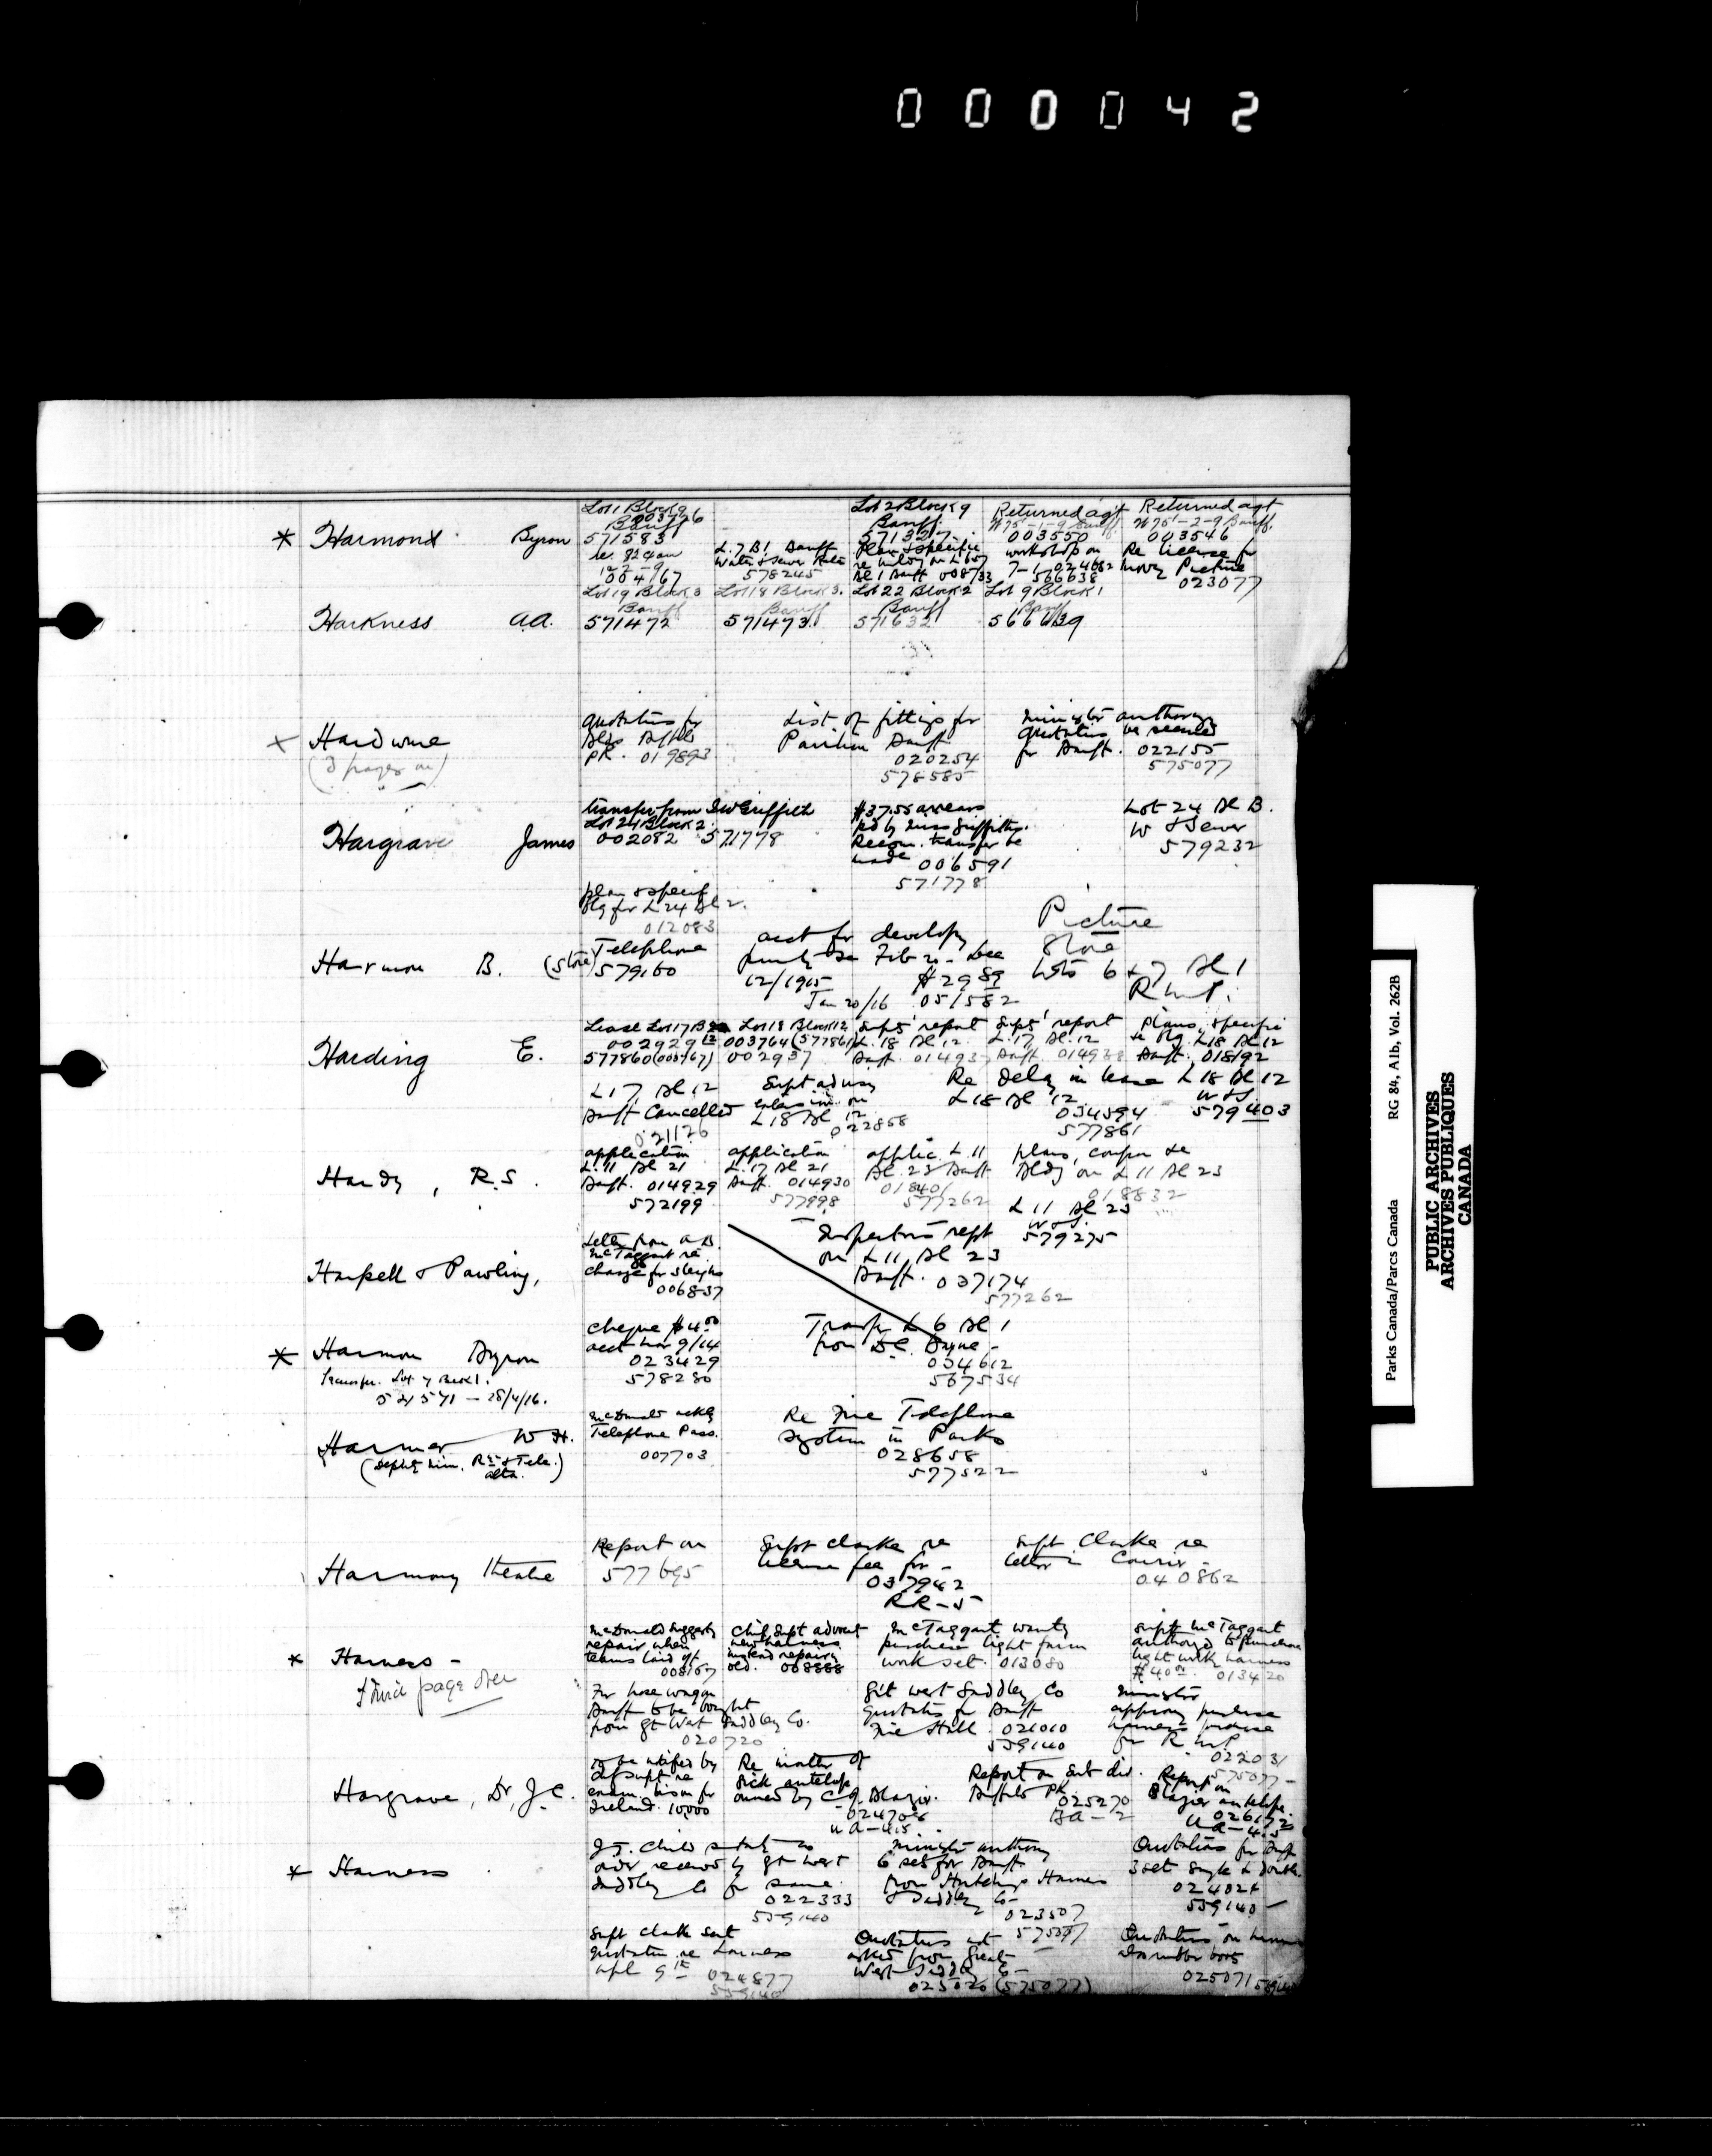 000042
* Harmon Byron
Lot 1 Block 9
Banff 003726
571583
004167
L. 7 Bl 1 Banff
Water & Sewer Rates
578245
Lot 2 Block 9
Banff
571327
Plan & specific
Bl 1 Banff 008733
Returned agt
003550
workshop on
7-1-024662
566638
Returned agt
W75'-2-9 Banff
003546
Re license for
moving Picture
023077
Harkness A.A.
Lot 19 Block 3
Banff
571472
Lot 18 Block 3.
Banff
571473
Lot 22 Block 2
Banff
571632
Lot 9 Block 1
Banff
566639
x Hardware
(3 pages on)
Quotations for
Bldgs Buffalo
PK. 019893
List of fittings for
Pavilion Banff
020254
578585
Minister authorizes
Quotations be secured
for Banff. 022155
575077
Hargrave James
transfer from Griffith
Lot 24 Block 2.
002082 571778
$37.55 arrears
pd by Miss Griffith.
Recom. transfer be
made 006591
571778
Lot 24 Bl B.
W & Sewer
579232
plan & specif
Bldg for L 24 Bl 2.
012083
Harmon B. (Store)
Telephone
579160
acct for develop
12/1915 $29 89
Jan 20/16 051582
Picture
Store
Lots 6 & 7 Bl 1
R.M.P.
Harding E.
Lease Lot 17 B 12
002929
577860 (000767)
Lot 18 Block 12
003764 (577861)
002937
Supts' report
L. 18 Bl. 12
Banff. 01493
Supts' report
L. 17 Bl. 12
Banff. 014938
Plans, specific
re Bldg. L18 Bl 12
Banff. 018192
L 17 Bl 12
Banff Cancelled
021126
Supt advising
extension on
L 18 Bl 12
022868
Re Delay in lease L 18 Bl 12
L 18 Bl 12
034594
577861
W & S
579403
Hardy, R.S.
application
L. 11 Bl 21
Banff. 014929
572199
application
L. 17 Bl 21
Banff. 014930
577998
applic. L. 11
Bl. 23 Banff
018401
577262
plans,
Bldg on L 11 Bl 23
018832
L 11 Bl 23
W & S.
579275
Inspectors rept
on L 11, Bl 23
Banff. 037174
577262
Harpell & Pawling,
Letter from A.B.
McTaggart re
charge for sleighs
006837
* Harmon Byron
Transfer. Lot 7 Block 1.
28/4/16.
cheque $4.00
acct Mar 9/14
023429
578280
Transfer L 6 Bl 1
from D.C. Bayne -
034612
567534
Harmer W H.
(Deputy Min. Rs & Tele.)
alta.
McDonald ackly
Telephone Pass.
007703
Re Fire Telephone
System in Parks
028658
577522
Harmony Theatre
Report on
577695
Supt Clarke re
license fee for -
037942
RR-5
Supt Clarke re
letter in Courier -
040862
* Harness -
third page over
McDonald suggests
repair when
teams laid off
008167
Chief Supt advocat
new harness
instead repairing
old. 008888
McTaggart wants
purchase light farm
work set. 013080
Supt McTaggart
authorized to purchase
light work harness
$40.00. 013420
For hose wagon
Banff to be bought
from Gt West Saddlery Co.
020720
Gt West Saddlery Co
Quotation for Banff
Fire Hall. 021010
559140
Minister
approves purchase
harness
for R.M.P.
022031
575077 -
Hargrave, Dr, J.C.
to be notified by
Supt re
exam. bison for
Ireland. 10,000
Re matter of
sick antelope
owned by C.J. Blazier.
024706
UA-4.15
Report on Sub div.
Buffalo Pk.
025270
BA-2
Report on
Blazier antelope.
026172
UA-4.5
* Harness
order received by Gt West
Saddlery Co for same.
022333
559140
Minister authority
6 sets for Banff
from Hutchings Harness
& Saddlery Co-
023507
575077
Quotations for Banff
3 set single & double.
024024
559140 -
Supt Clarke sent
quotation re harness
Apl 9th 024877
559140
Quotations
asked from Great
West Saddlery Co -
025020 (575077)
Quotations on harness
also rubber boots
025071
Parks Canada/Parcs Canada RG 84, A1b, Vol. 262B
PUBLIC ARCHIVES
ARCHIVES PUBLIQUES
CANADA